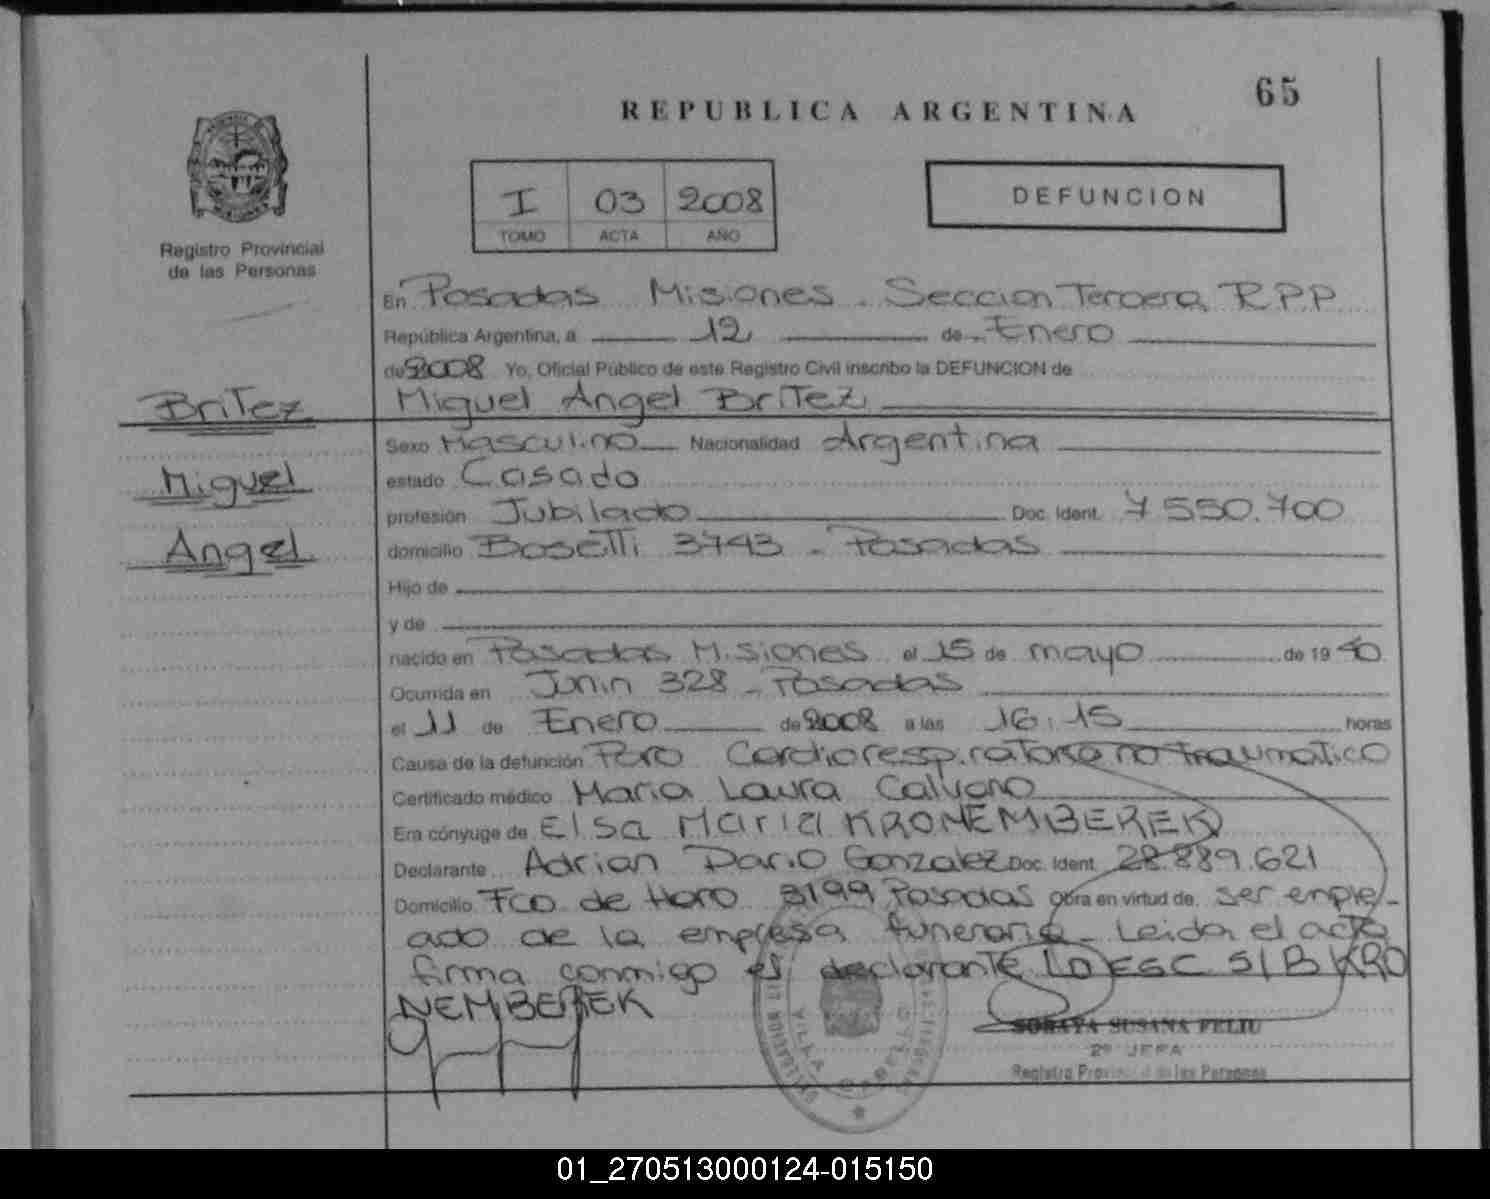 65
REPUBLICA ARGENTINA
I 03 2008
TOMO ACTA AÑO
DEFUNCION
Registro Provincial
de las Personas
En Posadas Misiones. Seccion Tercera R.P.P
República Argentina, a 12 de Enero
de 2008 Yo, Oficial Público de este Registro Civil inscribo la DEFUNCION de
Britez
Miguel
Angel
Miguel Angel Britez
Sexo Masculino Nacionalidad Argentina
estado Casado
profesión Jubilado Doc. Ident. 7.550.700
domicilio Bosetti 3743 - Posadas
Hijo de
y de
nacido en Posadas Misiones el 15 de mayo de 19
Ocurrida en Junin 328 - Posadas
el 11 de Enero de 2008 a las 16:15 horas
Causa de la defunción Paro Cardiorespiratorio no traumatico
Certificado médico Maria Laura
Era cónyuge de Elsa Maria KRONEMBEREK
Declarante Adrian Dario Gonzalez Doc. Ident. 28.889.621
Domicilio Fco de Haro 3199 Posadas Obra en virtud de ser emple-
ado de la empresa funeraria - Leida el acta
firma conmigo el declarante LO ESC S/B KRO
NEMBEREK
SORAYA SUSANA FELIU
2º JEFA
Registro Provincial de las Personas
01_270513000124-015150